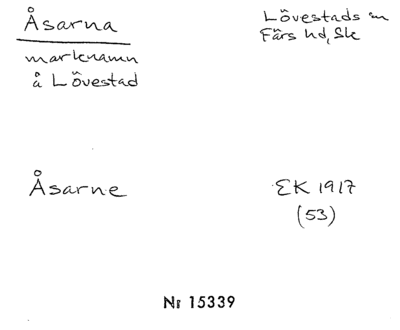 Åsarna
Lövestads sn
Färs hd, Sk
marknamn
å Lövestad
Åsarne
EK 1917
(53)
Nr 15339